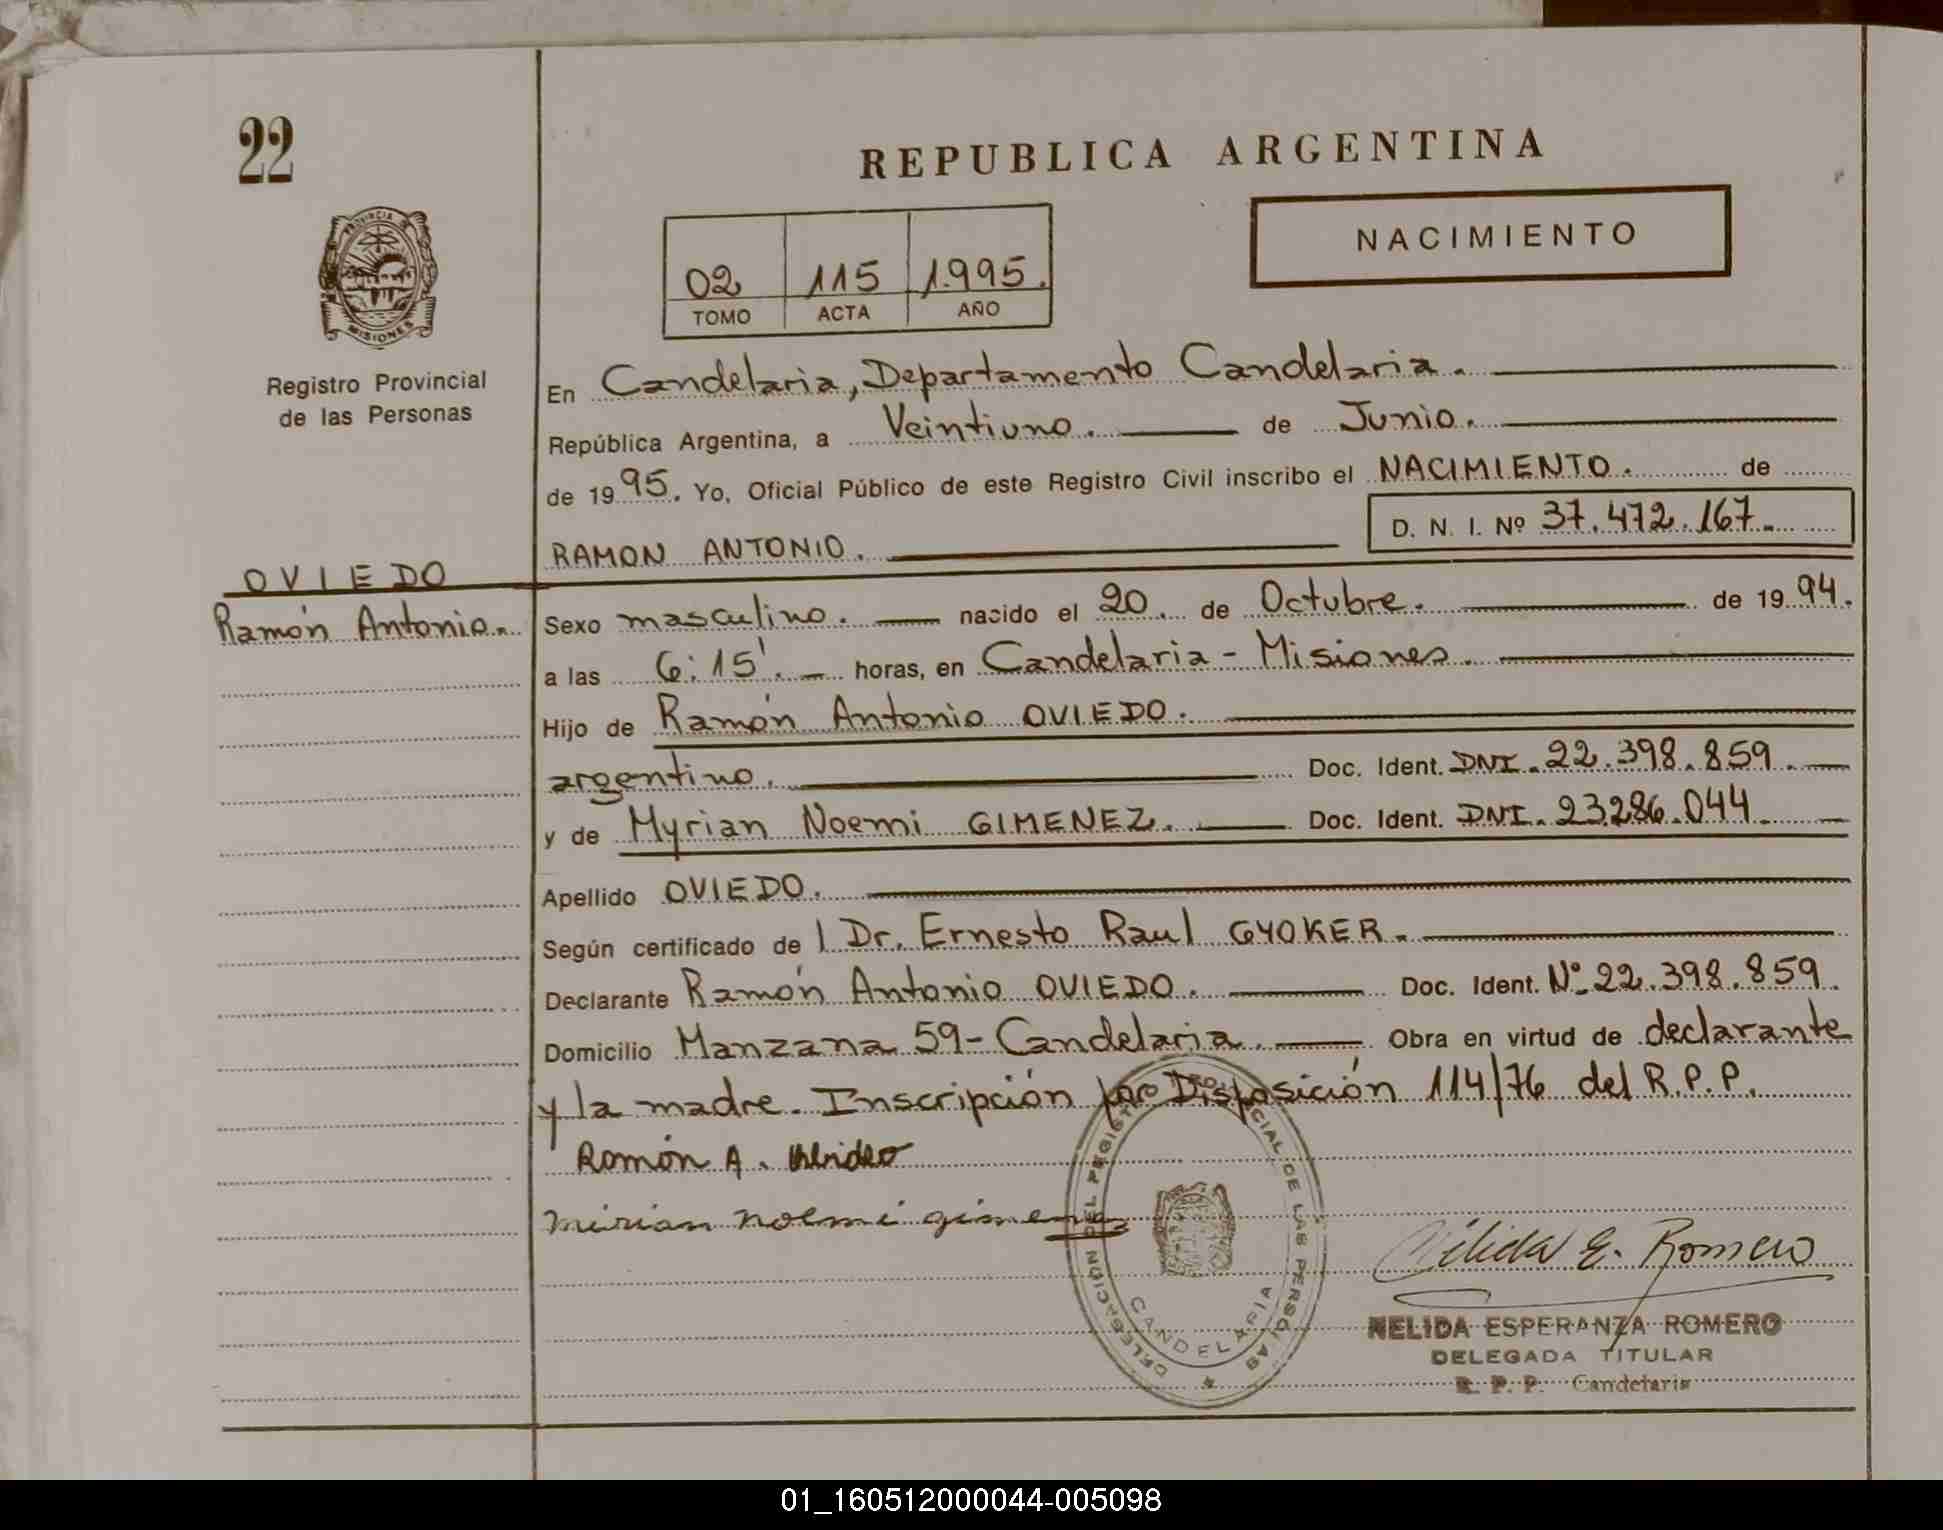 22
REPUBLICA ARGENTINA
NACIMIENTO
PROVINCIA DE
MISIONES
02 115 1.995.
TOMO ACTA AÑO
Registro Provincial
de las Personas
En Candelaria, Departamento Candelaria.
República Argentina, a Veintiuno. de Junio.
de 1995. Yo, Oficial Público de este Registro Civil inscribo el NACIMIENTO. de
D. N. I. Nº 37.472.167.
RAMON ANTONIO.
OVIEDO
Ramón Antonio.
Sexo masculino. nacido el 20. de Octubre. de 1994.
a las 6:15'. horas, en Candelaria - Misiones.
Hijo de Ramón Antonio OVIEDO.
argentino. Doc. Ident. DNI. 22.398.859.
y de Myrian Noemi GIMENEZ. Doc. Ident. DNI. 23286.044.
Apellido OVIEDO.
Según certificado de l Dr. Ernesto Raul GYOKER.
Declarante Ramón Antonio OVIEDO. Doc. Ident. Nº 22.398.859.
Domicilio Manzana 59- Candelaria. Obra en virtud de declarante
y la madre. Inscripción por Disposición 114/76 del R.P.P.
Ramón A.
mirian noemi gimenez
DELEGACIÓN DEL REGISTRO PROVINCIAL DE LAS PERSONAS
CANDELARIA
Nélida E. Romero
NELIDA ESPERANZA ROMERO
DELEGADA TITULAR
R. P. P. Candelaria
01_160512000044-005098